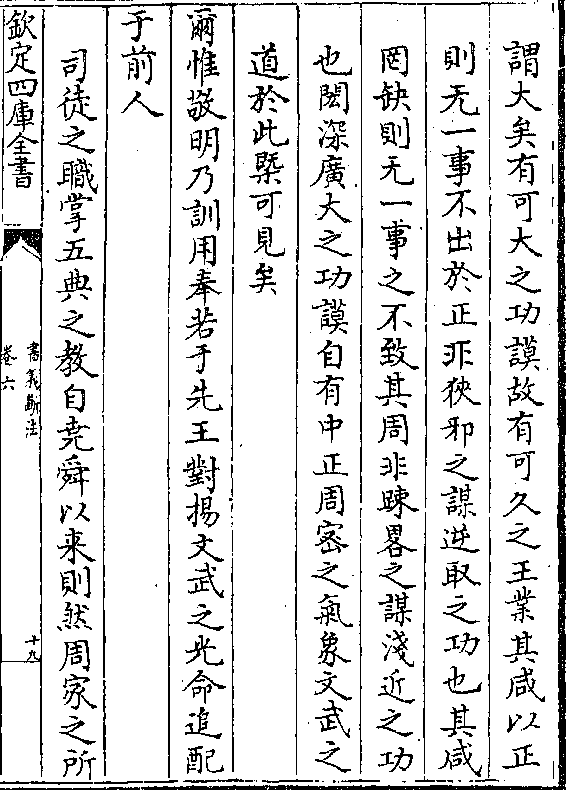 謂大矣有可大之功謨故有可久之王業其咸以正
則无一事不出於正非狹邪之謀逆取之功也其咸
罔缺則无一事之不致其周非踈畧之謀淺近之功
也閎深廣大之功謨自有中正周宻之氣象文武之
道於此槩可見矣
爾惟敬明乃訓用奉若于先王對揚文武之光命追配
于前人
司徒之職掌五典之教自堯舜以来則然周家之所
欽定四庫全書
書義斷法
卷六
十九